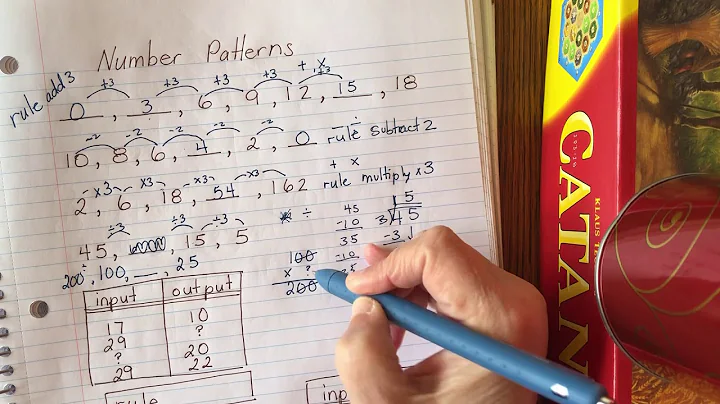 Number Patterns
rule add 3
+3 +3 +3 +3 + x +3
0, 3, 6, 9, 12, 15, 18
-2 -2 -2 -2 -2 - ÷
10, 8, 6, 4, 2, 0 rule subtract 2
x3 x3 x3 x3 + x
2, 6, 18, 54, 162 rule multiply x3
÷3 ÷3 ÷3 ÷
45, 15, 5
200, 100, __, 25
45
-10
35
-10
15
3 45
-3
100
x ?
200
input output
17 10
29 ?
? 20
29 22
rule
inp
CATAN
KLAUS TE